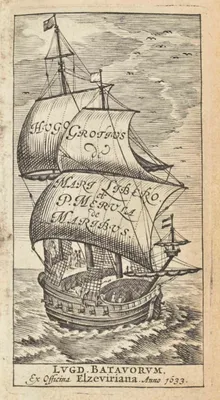 HUGO GROTIUS
de
MARI LIBERO
et
P. MERULA
de
MARIBUS.
LVGD. BATAVORVM,
Ex Officina Elzeviriana. Anno 1633.